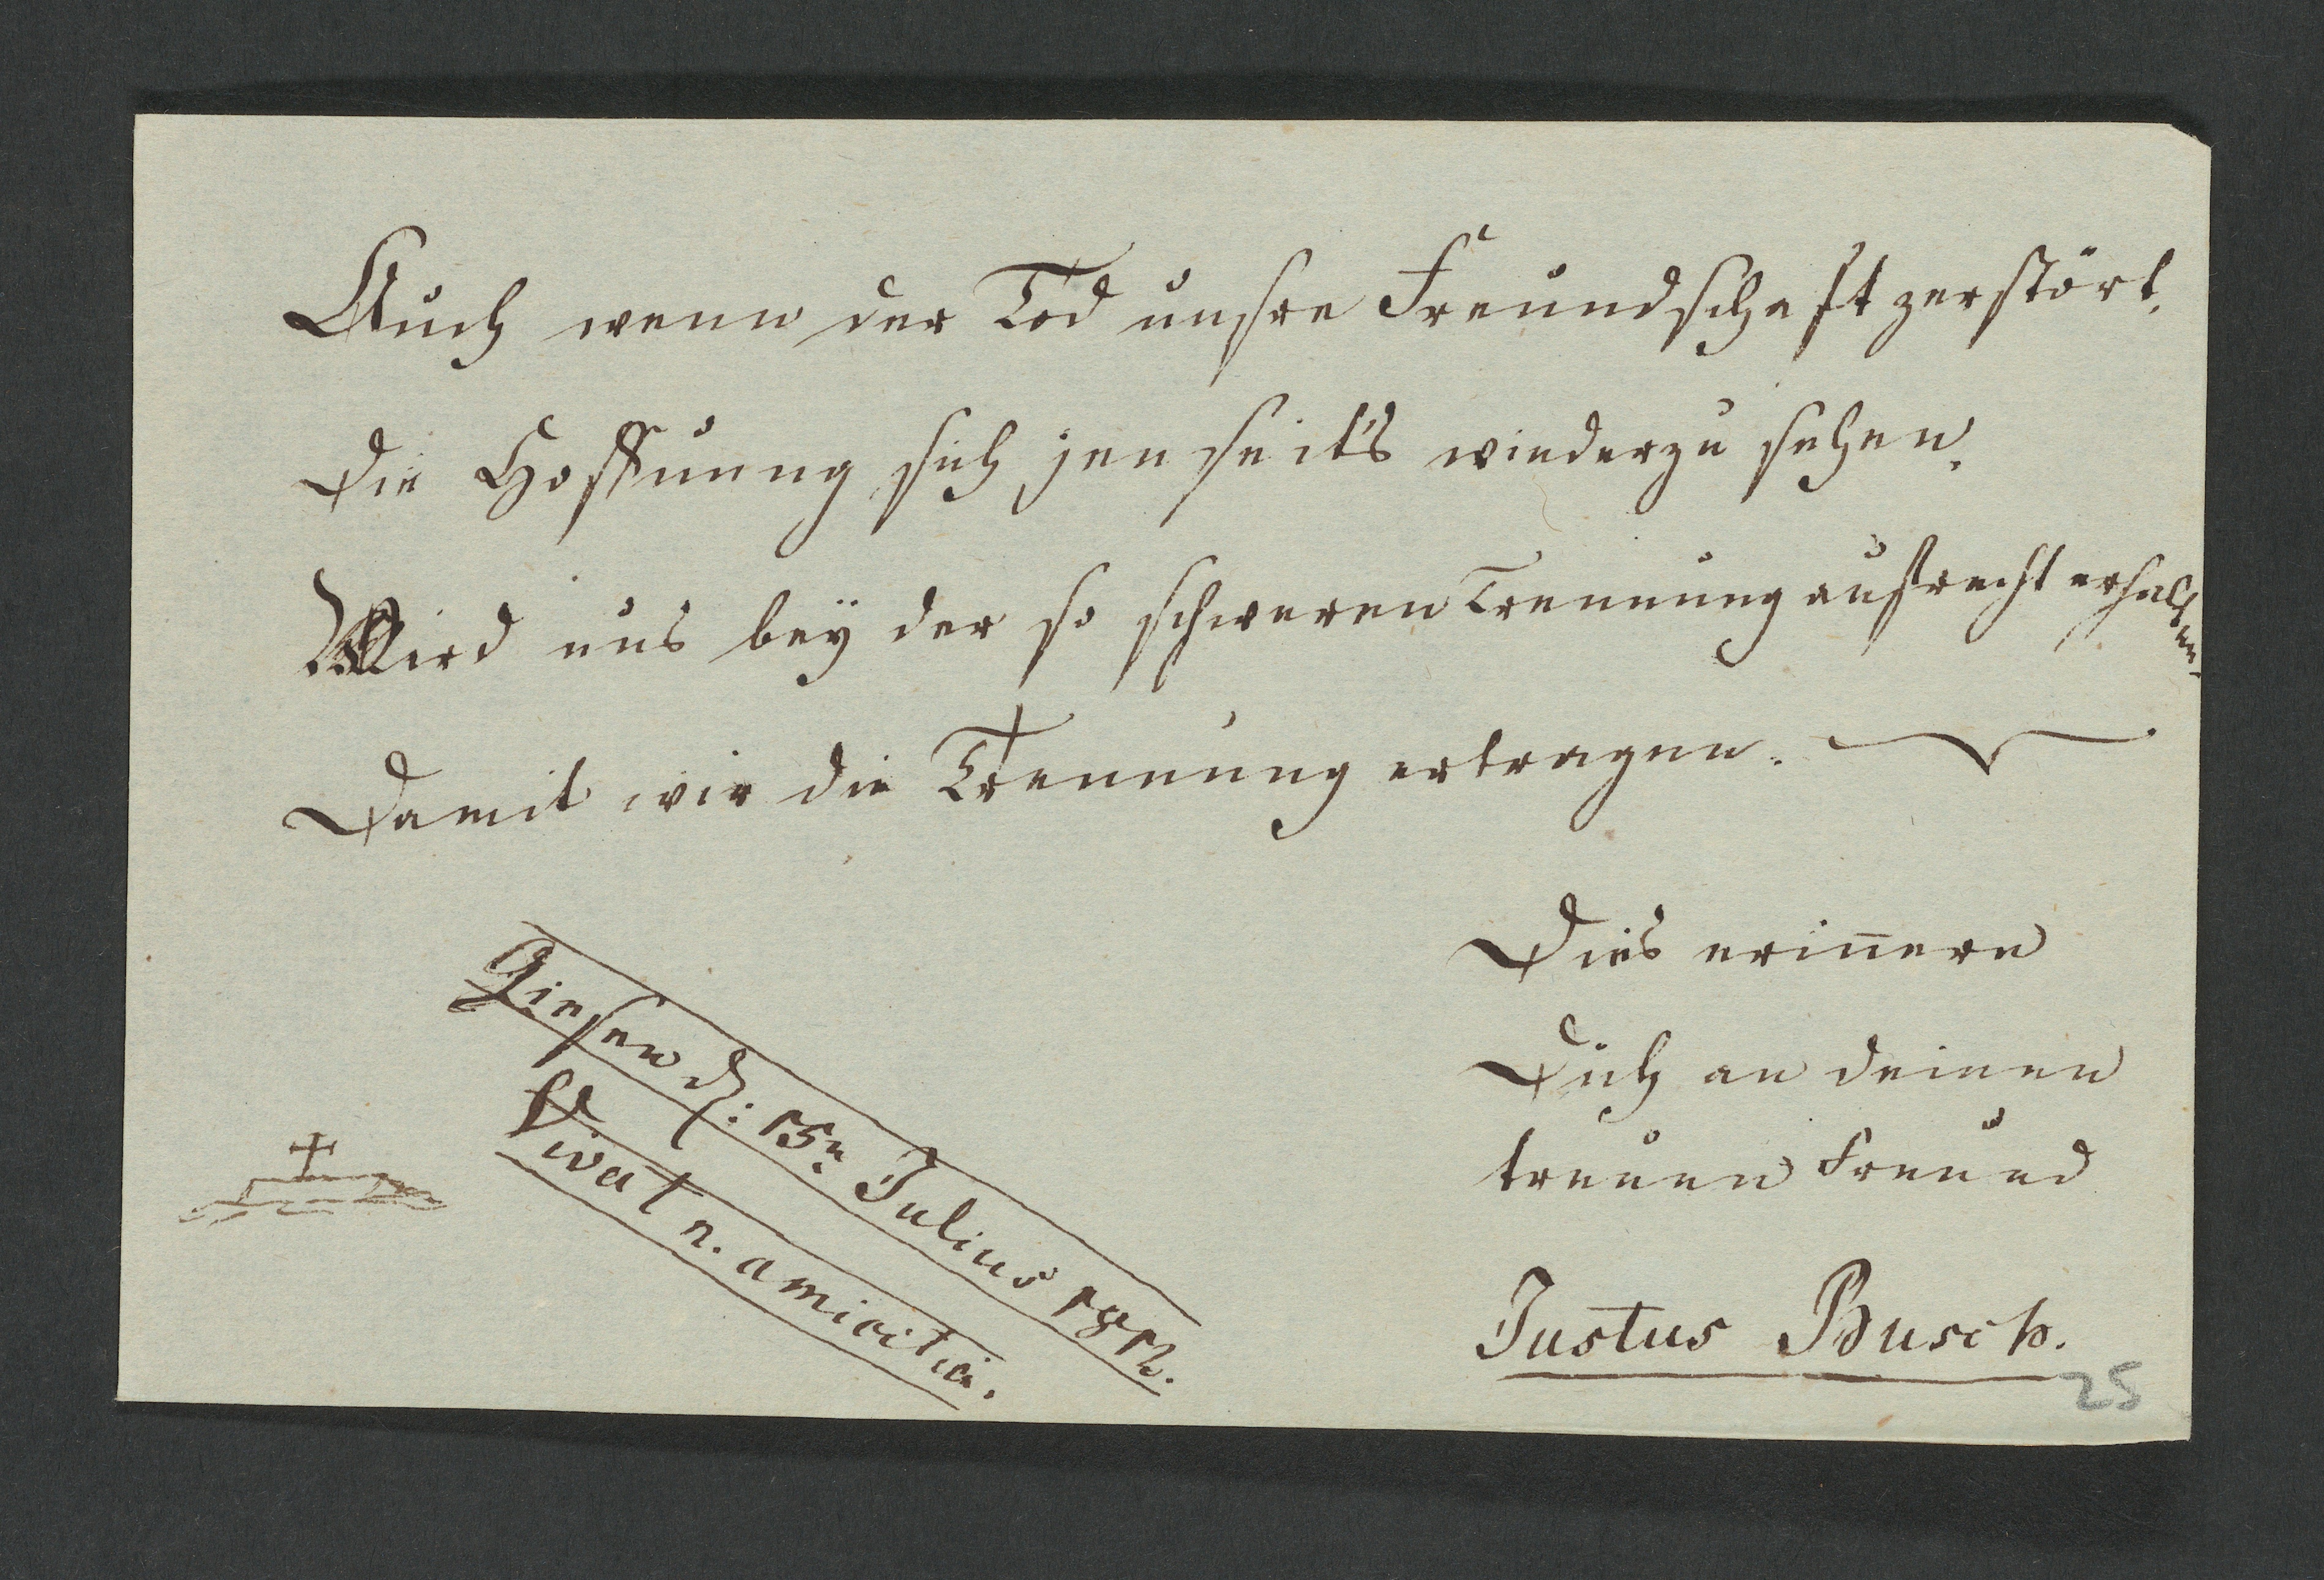 Auch wenn der Tod unsre Freundschaft zerstört.
Die Hoffnung sich jenseits wiederzu sehen.
Wird uns bey der so schweren Trennung aufrecht erhalten
Damit wir die Trennung ertragen.
Giesen d: 15n Julius 1812.
Vivat n. amicitia.
Dies erin̄ere
Dich an deinen
treuen Freund
Justus Busch.
25